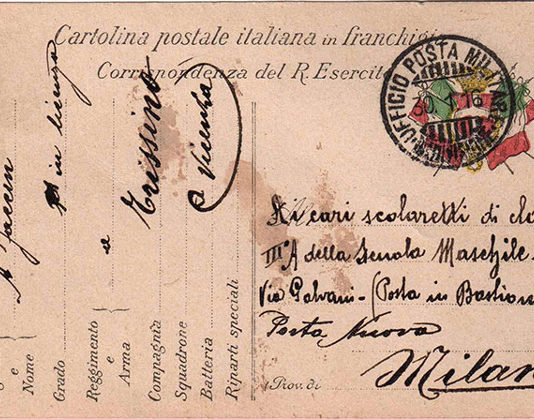 Cartolina postale italiana in franchigia
Corrispondenza del R. Esercito
UFFICIO POSTA MILITARE
30. V. 16
Ai cari scolaretti di
IIIª A della Scuola Maschile
Via Galvani - (Posta in Bastion
Porta Nuova
Milan
Prov. di
e
Nome
Grado
in licenza
Reggimento
e
a
Arma
Compagnia
Trissino
Squadrone
Batteria
Vicenza
Riparti speciali